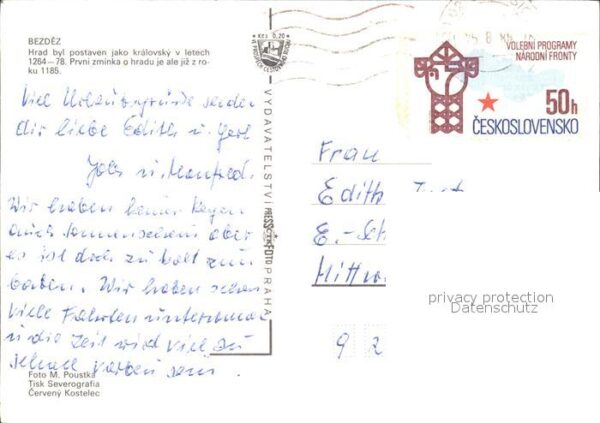 BEZDĚZ
Hrad byl postaven jako královský v letech
1264—78. První zmínka o hradu je ale již z ro-
ku 1185.
Kčs 0,20
Viel Urlaubsgrüsse senden
dir liebe Edith u. Gerl
u. Manfred.
Wir haben keinen Regen
auch Sonnenschein aber
es ist doch zu kalt zum
baden. Wir haben schon
viele Fahrten unternomm
u. die Zeit wird viel zu
schnell vorbei sein.
Foto M. Poustka
Tisk Severografia
Červený Kostelec
VYDAVATELSTVÍ PRESSFOTO PRAHA
VOLEBNÍ PROGRAMY
NÁRODNÍ FRONTY
50h
ČESKOSLOVENSKO
Frau
Edith
E.-Sch
Mittw
9 2
privacy protection
Datenschutz